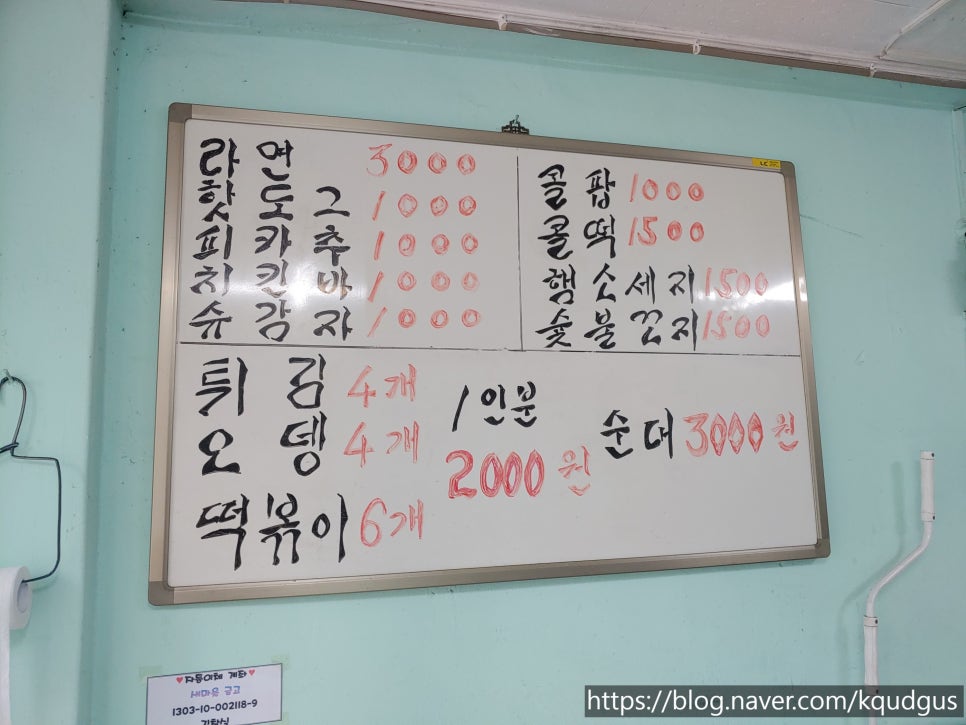 라면 3000
핫도그 1000
피카추 1000
치킨바 1000
슈감자 1000
콜팝 1000
콜떡 1500
햄소세지 1500
숯불꼬지 1500
튀김 4개
오뎅 4개
떡볶이 6개
1인분
2000원
순대 3000원
♥자동이체 계좌♥
새마을 금고
1303-10-002118-9
https://blog.naver.com/kqudgus